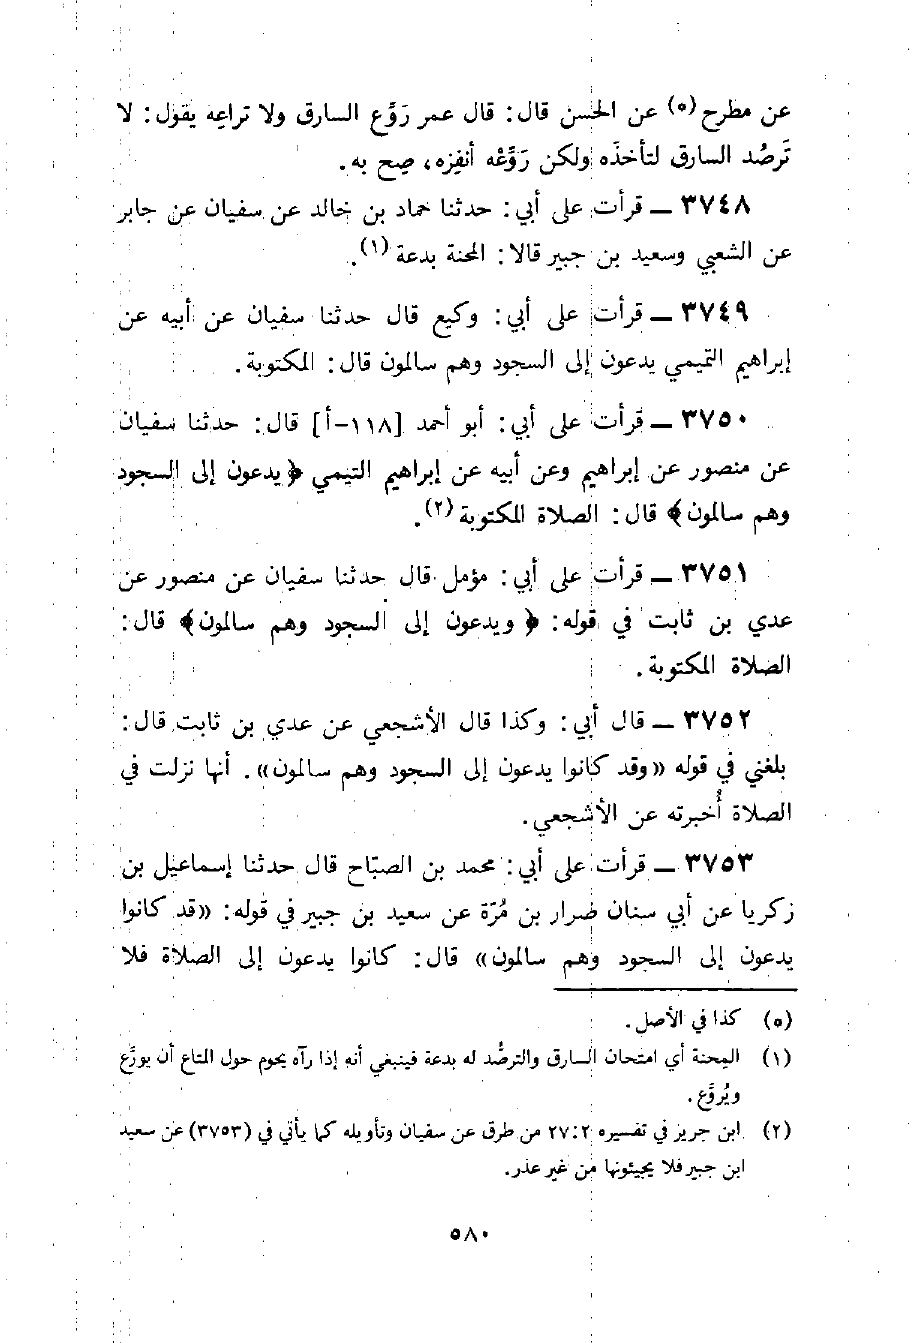 عن مطرح (٥) عن الحسن قال: قال عمر رَوَّع السارق ولا تراعِه يقول: لا
تَرصُد السارق لتأخذَه ولكن رَوِّعْه أنفِزه، صِح به.
٣٧٤٨ ــ قرأت على أبي: حدثنا حماد بن خالد عن سفيان عن جابر
عن الشعبي وسعيد بن جبير قالا: المحنة بدعة (١).
٣٧٤٩ ــ قرأت على أبي: وكيع قال حدثنا سفيان عن أبيه عن
إبراهيم التيمي يدعون إلى السجود وهم سالمون قال: المكتوبة.
٣٧٥٠ ــ قرأت على أبي: أبو أحمد [١١٨-أ] قال: حدثنا سفيان
عن منصور عن إبراهيم وعن أبيه عن إبراهيم التيمي ﴿يدعون إلى السجود
وهم سالمون﴾ قال: الصلاة المكتوبة (٢).
٣٧٥١ ــ قرأت على أبي: مؤمل قال حدثنا سفيان عن منصور عن
عدي بن ثابت في قوله: ﴿ويدعون إلى السجود وهم سالمون﴾ قال:
الصلاة المكتوبة.
٣٧٥٢ ــ قال أبي: وكذا قال الأشجعي عن عدي بن ثابت قال:
بلغني في قوله «وقد كانوا يدعون إلى السجود وهم سالمون». أنها نزلت في
الصلاة أُخبرته عن الأشجعي.
٣٧٥٣ ــ قرأت على أبي: محمد بن الصبّاح قال حدثنا إسماعيل بن
زكريا عن أبي سنان ضرار بن مُرّة عن سعيد بن جبير في قوله: «قد كانوا
يدعون إلى السجود وهم سالمون» قال: كانوا يدعون إلى الصلاة فلا
(٥) كذا في الأصل.
(١) المِحنة أي امتحان السارق والترصُّد له بدعة فينبغي أنه إذا رآه يحوم حول المتاع أن يوزَّع
ويُروَّع.
(٢) ابن جرير في تفسيره ٢٧:٢ من طرق عن سفيان وتأويله كما يأتي في (٣٧٥٣) عن سعيد
ابن جبير فلا يجيئونها من غير عذر.
٥٨٠